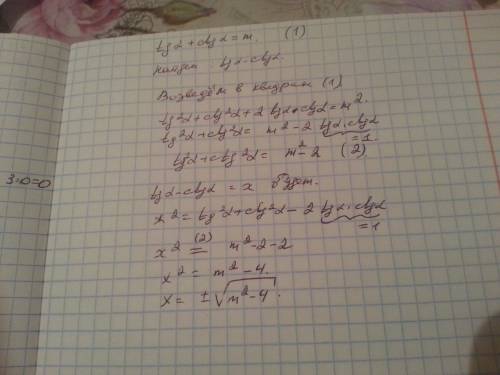 tgα + ctgα = m. (1)
Найти tgα - ctgα.
Возведём в квадрат (1)
tg²α + ctg²α + 2 tgα · ctgα = m².
tg²α + ctg²α = m² - 2 tgα · ctgα
= 1
tg²α + ctg²α = m² - 2 (2)
3·0=0
tgα - ctgα = x будет.
x² = tg²α + ctg²α - 2 tgα · ctgα
= 1
x² (2) = m² - 2 - 2
x² = m² - 4.
x = ± √m² - 4.